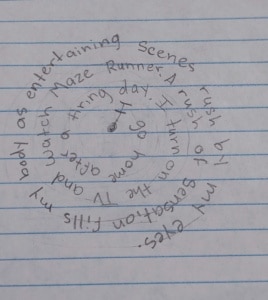 I go home after a tiring day. I turn on the TV and watch Maze Runner. A rush of sensation fills my body as entertaining scenes rush by my eyes.